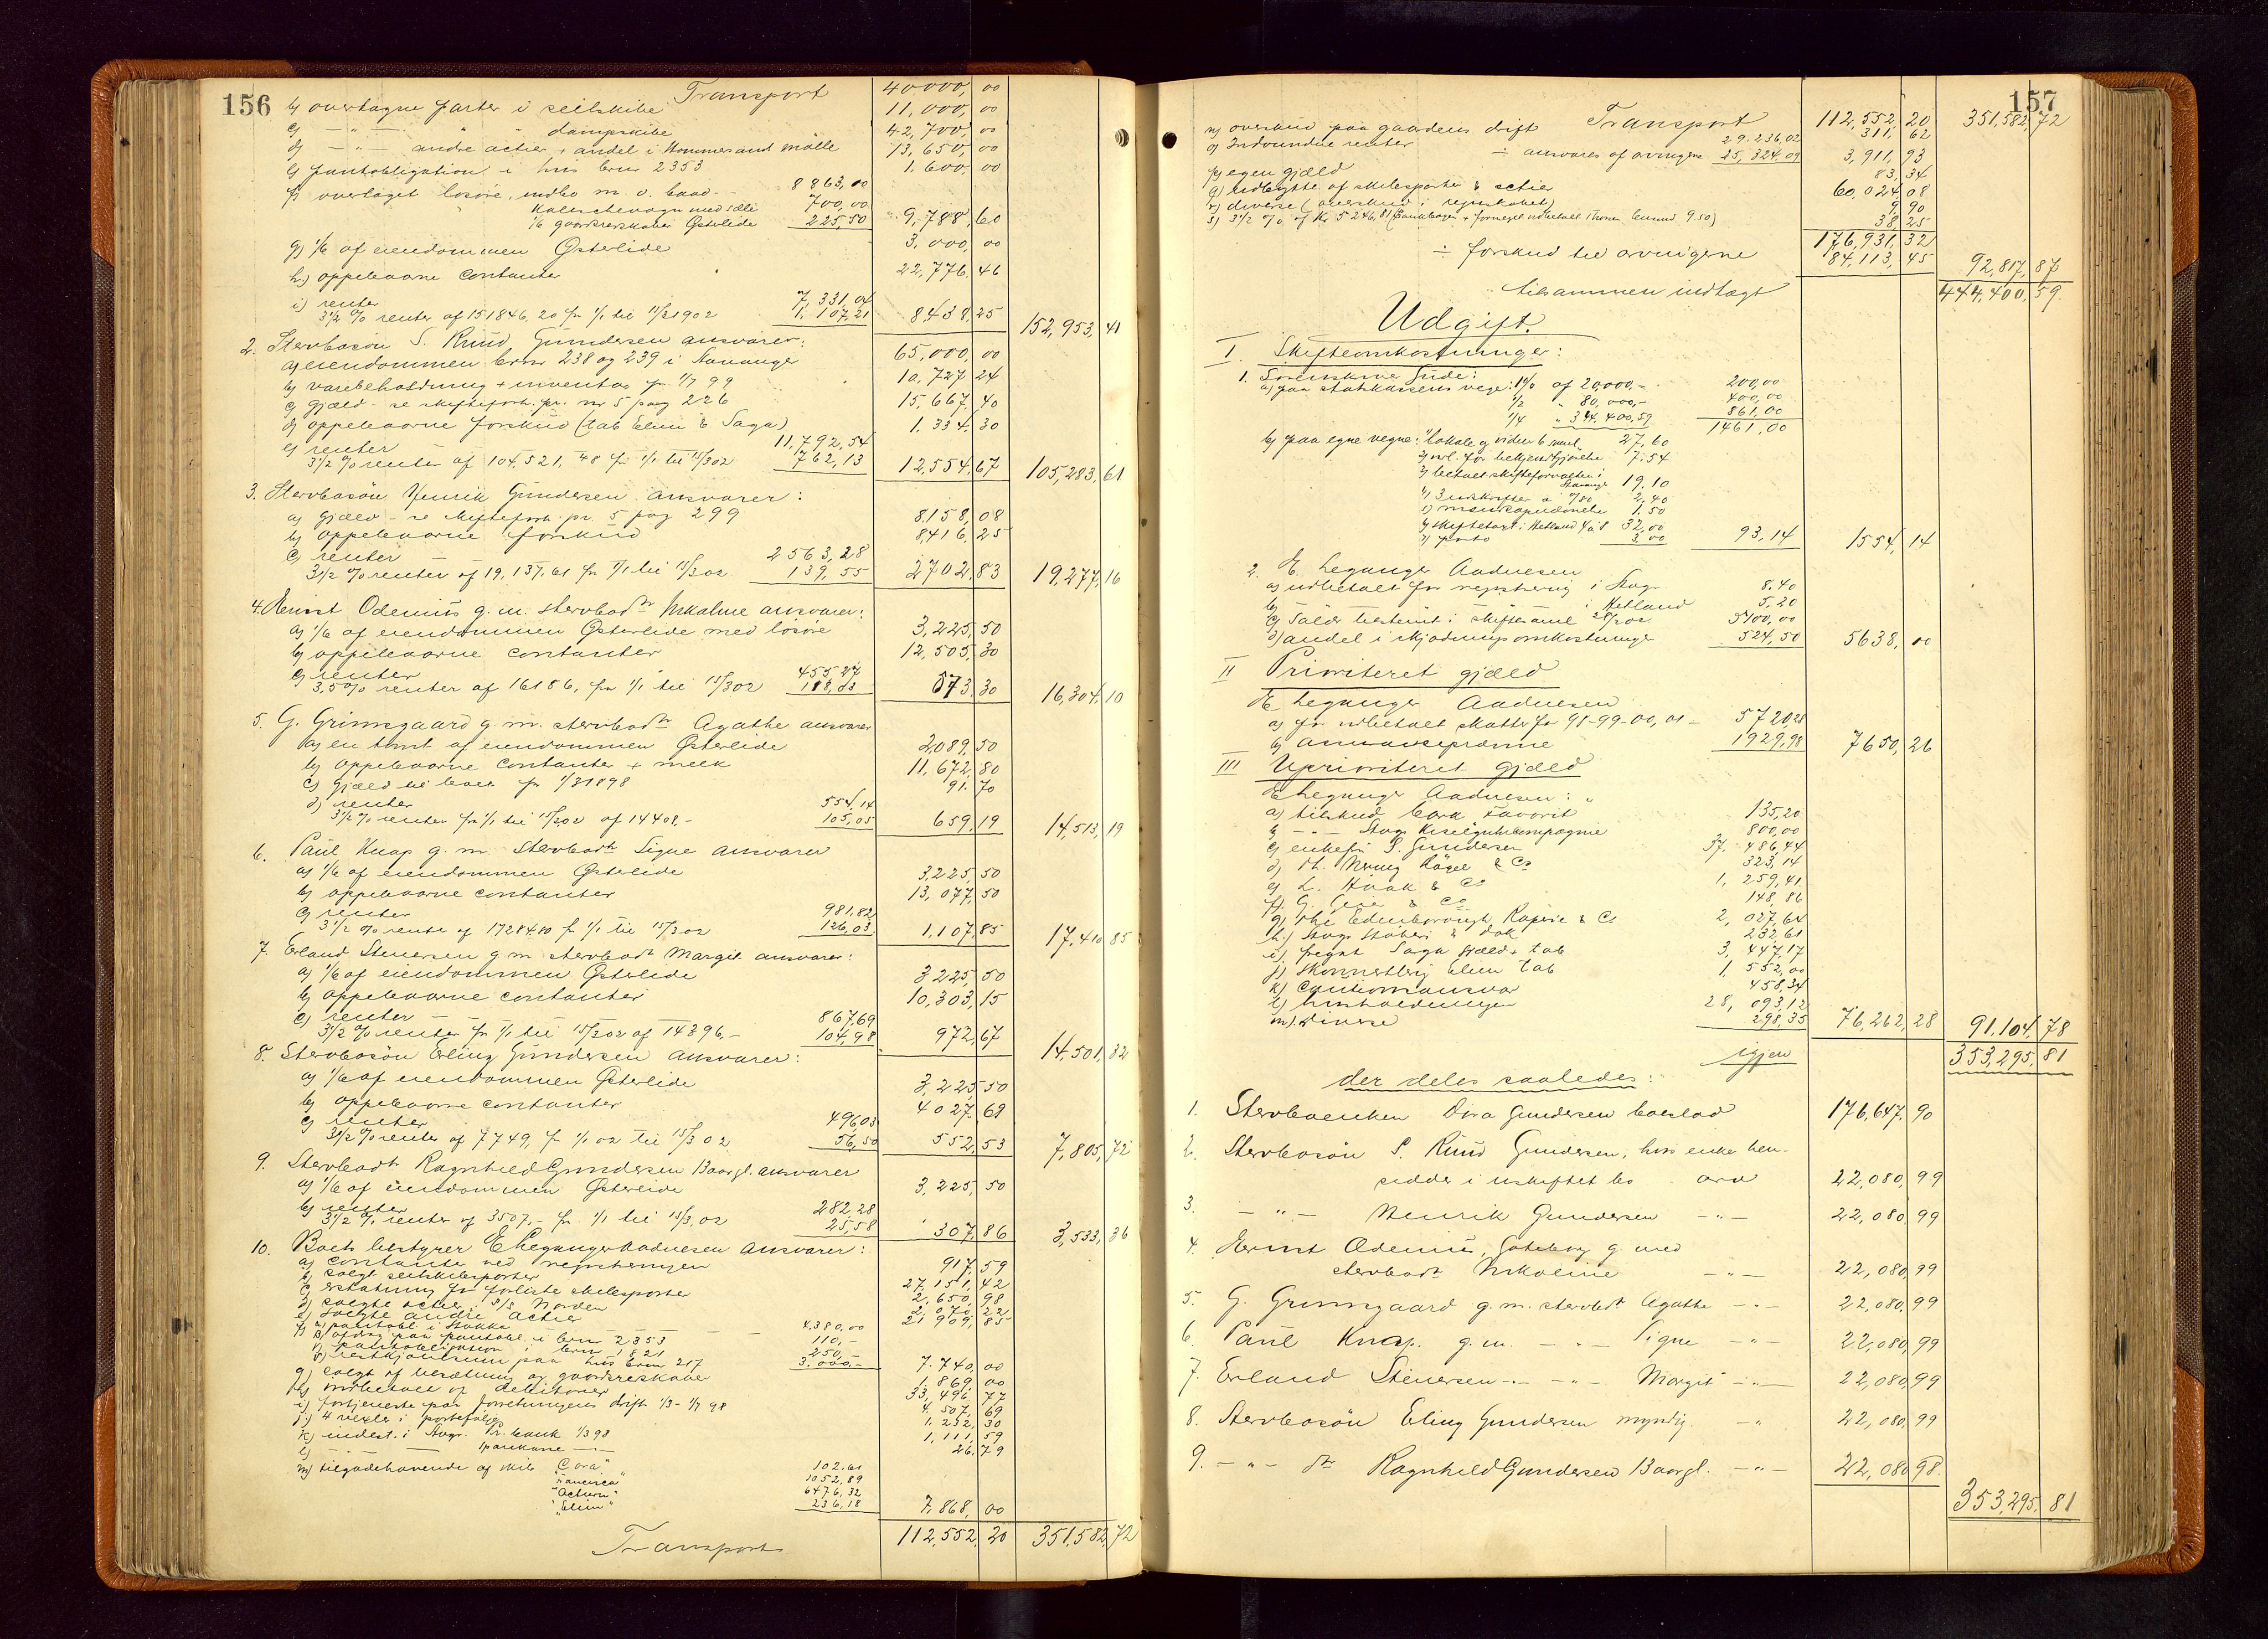 156
Transport 40000,00
b) overtagne parter i seilskibe 11,000,00
c) - " - " - dampskibe 42,700,00
d) - " - andre actier + andel i Hommersand mölle 13,650,00
e) pantobligation i hus brno 2353 1.600,00
f) overtaget lösöre, indbo m.v. baad - 8863,00
Kaleschevogn med sæle 700,00
1/6 gaardsredskaber Österlide 225,50 9,788,60
g) 1/6 af eiendommen Österlide 3,000,00
h) oppebaarne contanter 22,776,46
i) renter 7,331,04
3 1/2 % renter af 151846,20 fra 1/1 til 15/3 1902 1,107,21 8438,25 152,953,41
2. Stervbosön S. Ruud Gundersen ansvarer:
a) eiendommen brno 238 og 239 i Stavanger 65,000,00
b) varebeholdning + inventar pr. 1/7 99 10,727,24
c) gjæld - se skifteforh. pr. nr 5 pag 226 15,667,40
d) oppebaarne forskud (tab Elim & Saga) 1.334,30
e) renter 11,792,54
3 1/2 % renter af 104,521,48 fra 1/1 til 15/3 02 762,13 12,554,67 105,283,61
3. Stervbosön Henrik Gundersen ansvarer:
a) gjæld - se skifteforh. pr. 5 pag 299 8158,08
b) oppebaarne forskud 8416,25
c) renter 2563,28
3 1/2 % renter af 19,137,61 fra 1/1 til 15/3 02 139,55 2702,83 19,277,16
4. Ernst Odenius g. m. stervbodtr Nikoline ansvarer:
a) 1/6 af eiendommen Österlide med lösöre 3,225,50
b) oppebaarne contanter 12,505,30
c) renter 455,27
3,5 % renter af 16186, fra 1/1 til 15/3 02 118,03 573,30 16,304,10
5. G. Grimsgaard g. m. stervbodtr Agathe ansvarer
a) en tomt af eiendommen Österlide 2,089,50
b) oppebaarne contanter + melk 11,672,80
c) gjæld til boet pr 1/3 1898 91,70
d) renter 554,14
3 1/2 % renter fra 1/1 til 15/3 02 af 14408,- 105,05 659,19 14,513,19
6. Paul Knap g. m. stervbodtr Signe ansvarer
a) 1/6 af eiendommen Österlide 3,225,50
b) oppebaarne contanter 13,077,50
c) renter 981,82
3 1/2 % renter af 17284,80 fr 1/1 til 15/3 02 126,03 1,107,85 17,410,85
7. Erland Stenersen g. m. stervbodtr Margit ansvarer:
a) 1/6 af eiendommen Österlide 3225,50
b) oppebaarne contanter 10,303,15
c) renter 867,69
3 1/2 % renter fra 1/1 til 15/3 02 af 14396,- 104,98 972,67 14,501,32
8. Stervbosön Erling Gundersen ansvarer:
a) 1/6 af eiendommen Österlide 3,225,50
b) oppebaarne contanter 4027,69
c) renter 496,03
3 1/2 % renter af 7749, fra 1/1 02 til 15/3 02 56,50 552,53 7,805,72
9. Stervbodtr Ragnhild Gundersen Baargl. ansvarer
a) 1/6 af eiendommen Österlide 3,225,50
b) renter 282,28
3 1/2 % renter af 3507,- fra 1/1 til 15/3 02 25,58 307,86 3,533,36
10. Boets bestyrer E Leganger Aadnesen ansvarer:
a) contanter ved registreringen 917,59
b) solgt seilskibsparter 27,151,42
c) erstatning for forliste skibsparter 2,650,98
d) solgte actier i S/S Norden 2,070,22
e) solgte andre actier 21909,85
f) α) pantobl. i Stokke 4,380,00
β) afdrag paa pantobl. i brno 2353 110,-
γ) pantobligation i brno 1821 250,-
δ) restkjöbesum paa hus brno 217 3.000,- 7.740,00
g) solgt af besætning og gaardsredskaber 1.869,00
h) indbetalt af debitorer 33,496,77
i) fortjeneste paa forretningens drift 1/3 - 1/7 98 4,507,69
j) 4 vexler i portefölje 1,232,30
k) indest. i Stavgr. Pr. bank 1/3 98 1,111,59
l) - " - Sparekasse - " - 26,79
m) tilgodehavende af skib "Cora" 102,61
"America" 1052,89
"Actiern" 6476,32
"Elim" 236,18 7,868,00
Transport 112,552,20 351,582,72
157
Transport 112,552,20 351,582,72
n) overskud paa gaardens drift 311,62
o) Indvundne renter 29.236,02
÷ ansvares af arvingerne 25,324,09 3,911,93
p) egen gjæld 83,34
q) udbytte af skibsparter & actier 60,024,08
r) diverse (overskud i regnskabet) 9,90
s) 3 1/2 % af Kr 5246,81 38,25
176,931,32
÷ forskud til arvingerne 84,113,45 92,817,87
tilsammen indtægt 444,400,59
Udgift.
I. Skifteomkostninger:
1. Sorenskriver Gude:
a) paa statskassens vegne: 1% af 20,000,- 200,00
1/2 " 80,000,- 400,00
1/4 " 344,400,59 861,00
1461,00
b) paa egne vegne: 1) lokale og vidner 6 mænd 27,60
2) avl. for bekjendtgjörelse 7,54
3) betalt skifteforvalteren i Stavanger 19,10
4) 3 udskrifter a 0/80 2,40
5) 1,50
6) skiftetaxt i Hetland 4 a 8 32,00
7) porto 3,00 93,14 1554,14
2. E. Leganger Aadnesen
a) udbetalt for registrering i Stavgr 8,40
b) - " - i Hetland 5,20
c) Salær bestemt i skiftesaml 28/2 02 5100,00
d) andel i skjödningsomkostninger 524,50 5638,00
II Prioriteret gjæld
E Leganger Aadnesen
a) for udbetalt skatter for 98-99-00, 01 - 5720,28
b) assuransepræmie 1929,98 7650,26
III Uprioriteret gjæld
E Leganger Aadnesen:
a) tilskud bark Favorit 135,20
b) - " - Stavgr Kiselguhrkompagnie 800,00
c) enkefru S. Gundersen 37.486,44
d) 323,14
e) L. Haak & Co 1,259,41
f) G. & Co 148,86
g) the Edenborough, Roperie & Co 2,027,64
h) Stavgr Stöberi & Dok 232,61
i) fregat Saga gjæld + tab 3,447,17
j) skonnertbrig Elim tab 1,552,00
k) cautionsansvar 458,34
l) husholdningen 28,093,12
m) diverse 298,35 76,262,28 91,104,78
igjen 353,295,81
der deles saaledes:
1. Stervboenken Dina Gundersen boeslod 176,647,90
2. Stervbosön S. Ruud Gundersen, hvis enke hen-
sidder i uskiftet bo arv 22,080,99
3. - " - Henrik Gundersen - " - 22,080,99
4. Ernst Odenius, Göteborg g. med
stervbodtr Nikoline - " - 22,080,99
5. G. Grimsgaard g. m. stervbdtr Agathe - " - 22,080,99
6. Paul Knap. g. m. - " - Signe - " - 22,080,99
7. Erland Stenersen - " - - " - Margit - " - 22,080,99
8. Stervbosön Erling Gundersen myndig. - " - 22,080,99
9. - " - dtr Ragnhild Gundersen Baargl. - " - 22,080,98
353,295,81